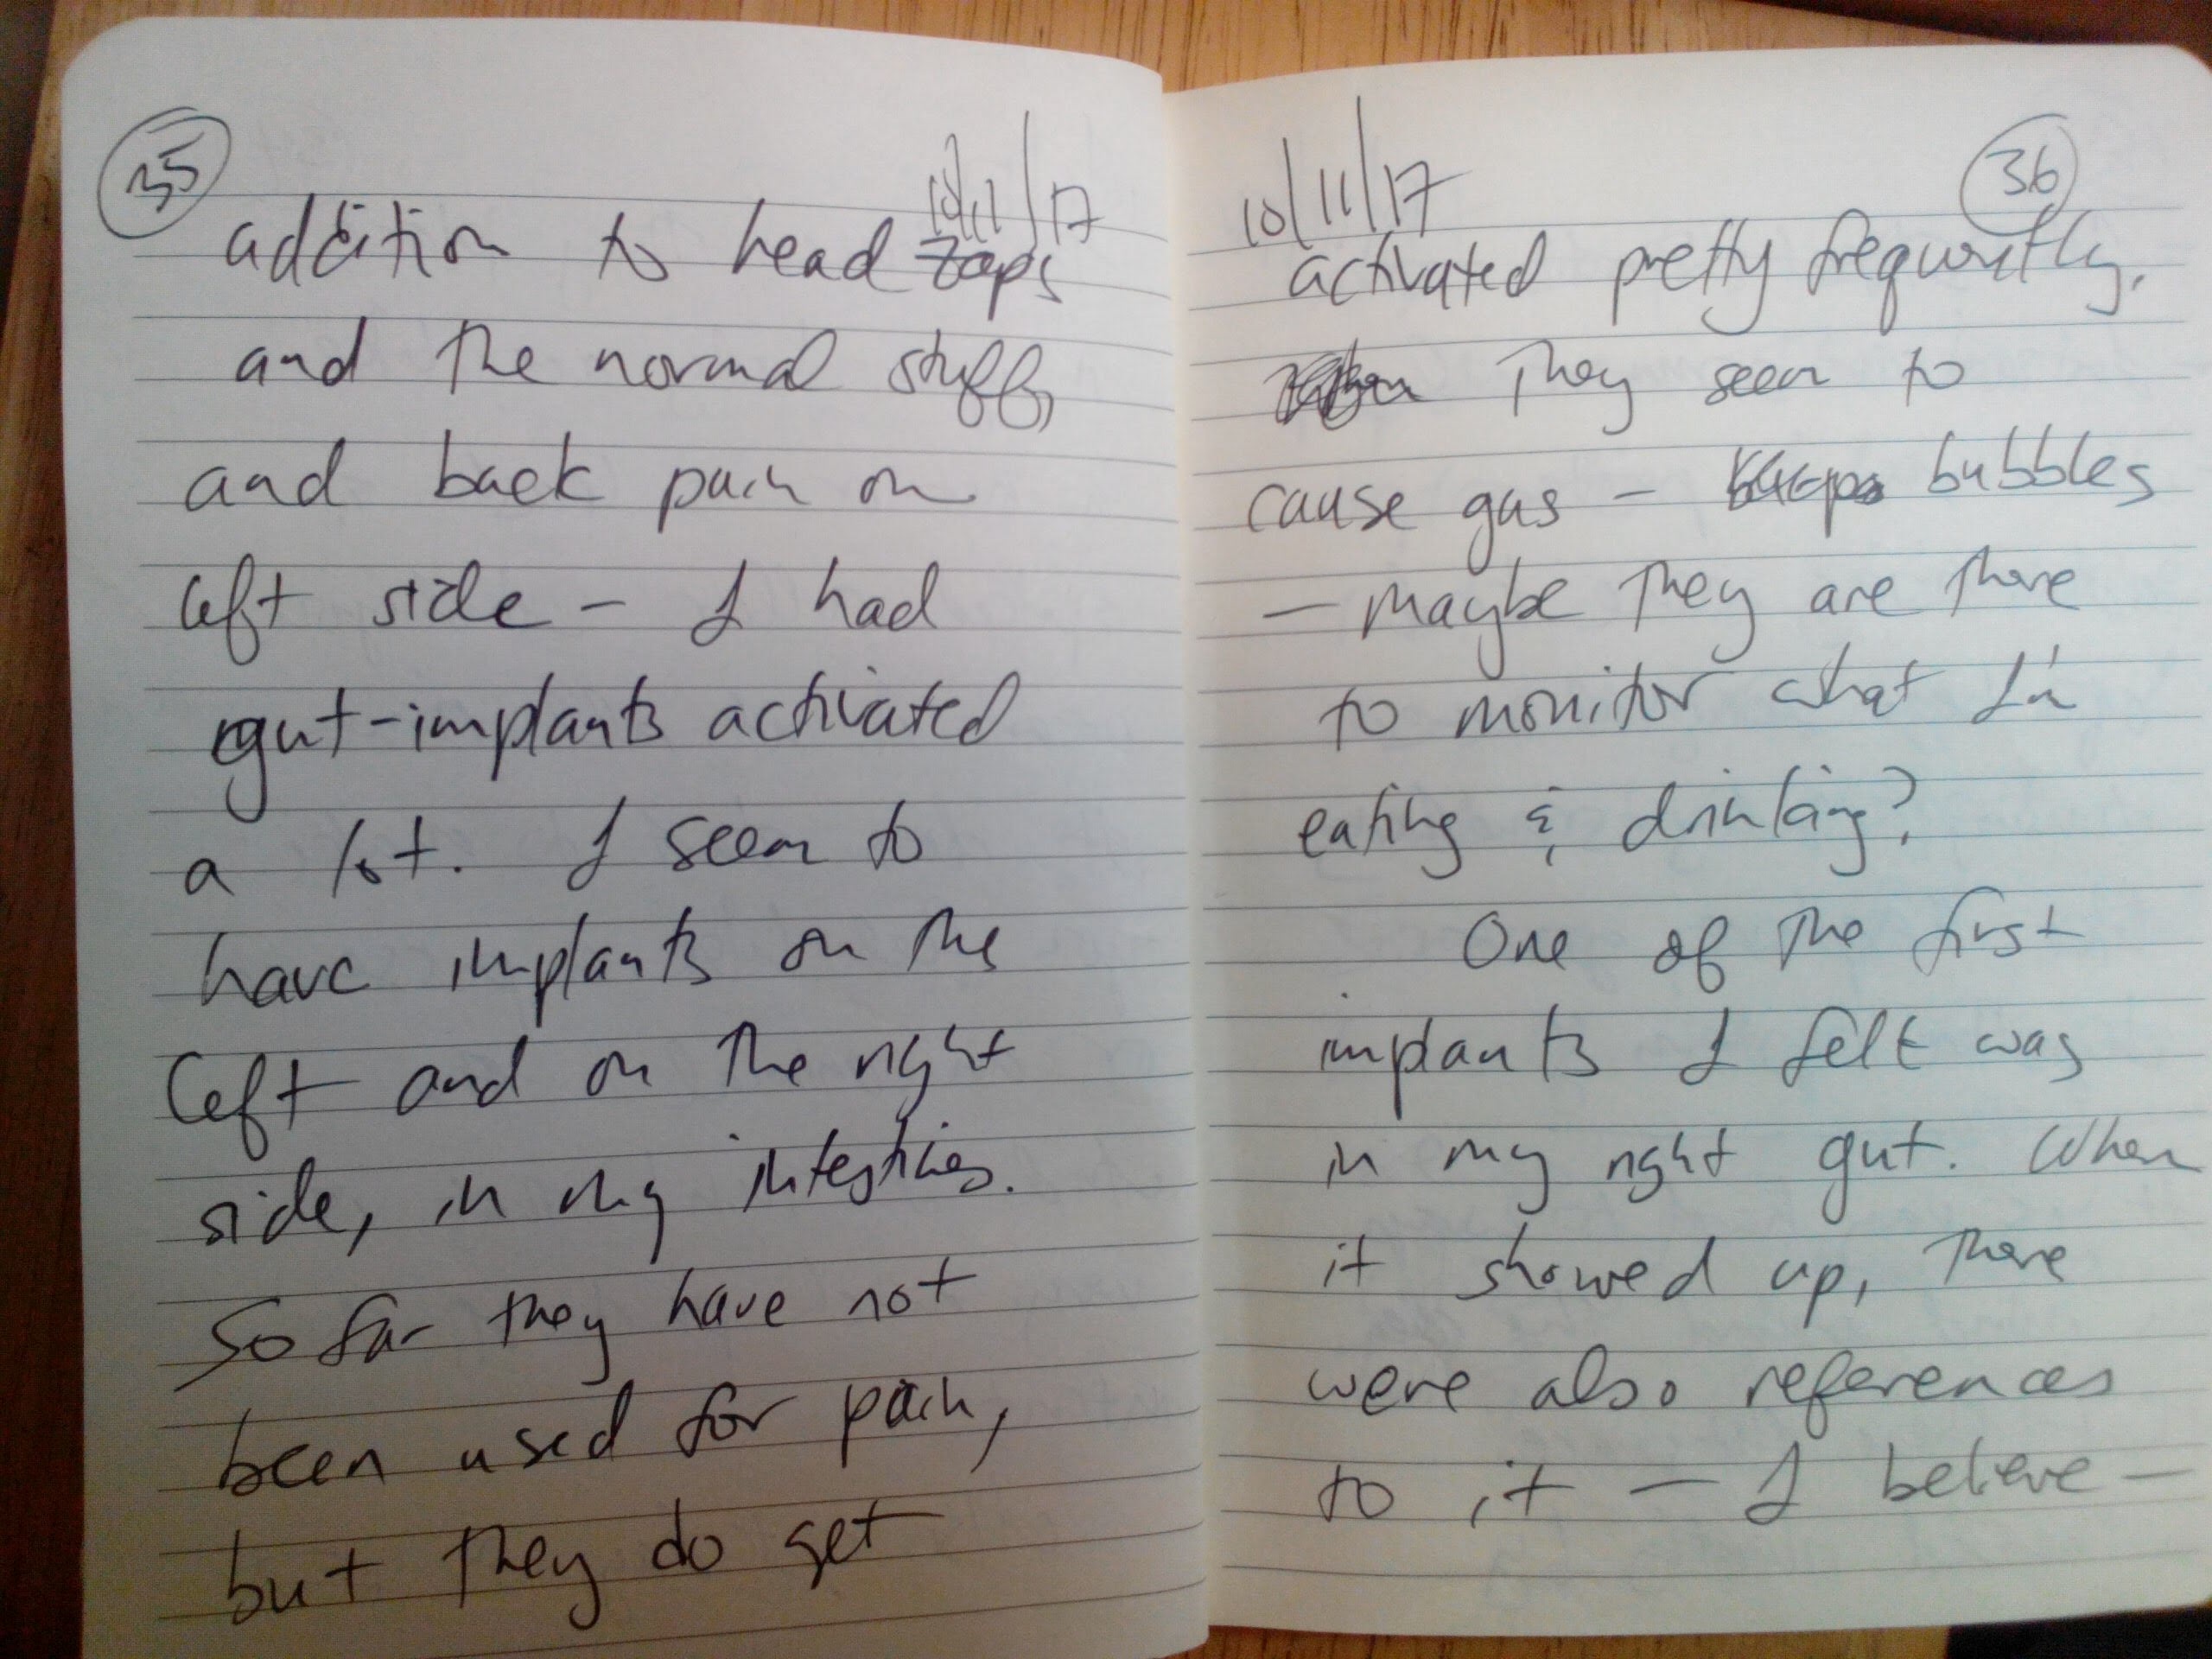 35
10/11/17
addition to head zaps
and the normal stuff,
and back pain on
left side – I had
gut-implants activated
a lot. I seem to
have implants on the
left and on the right
side, in my intestines.
So far they have not
been used for pain,
but they do get
10/11/17
36
activated pretty frequently.
They seem to
cause gas – bubbles
– maybe they are there
to monitor what I'm
eating & drinking?
One of the first
implants I felt was
in my right gut. When
it showed up, there
were also references
to it – I believe –